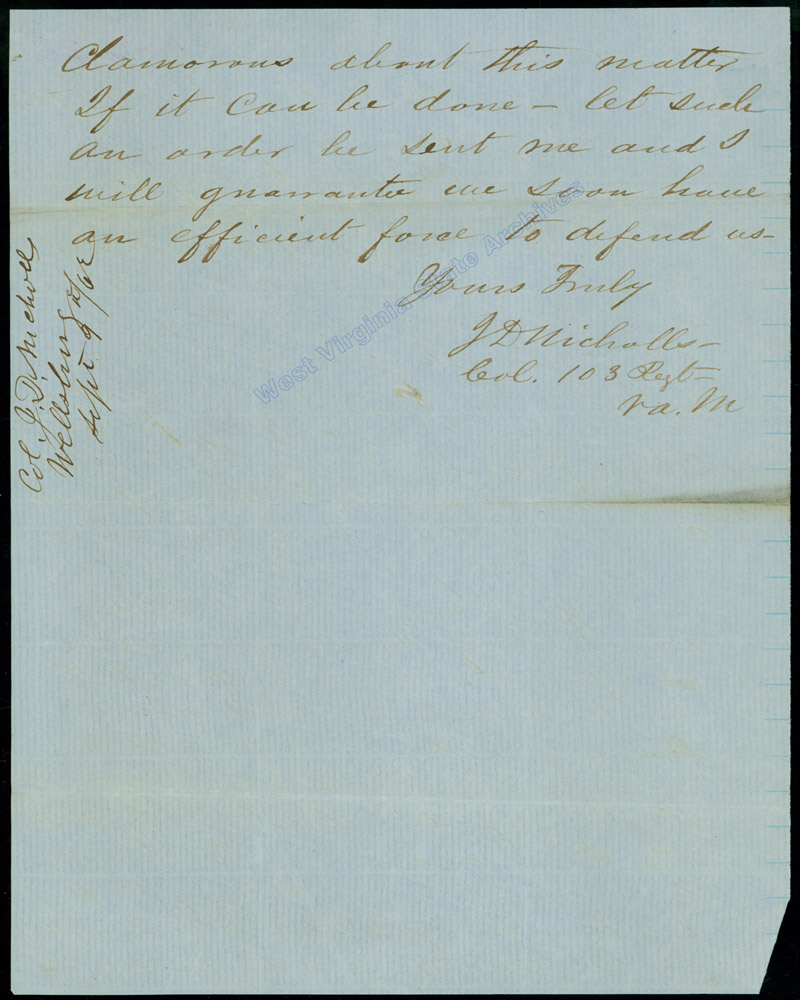 Clamorous about this matter
If it can be done – let such
an order be sent me and I
will guarrantee we soon have
an efficient force to defend us–
Yours Truly
J D Nicholls–
Col. 103 Regt–
Va. M
Col. J. D. Nicholls
Wellsburg
Sept 9/62
West Virginia State Archives